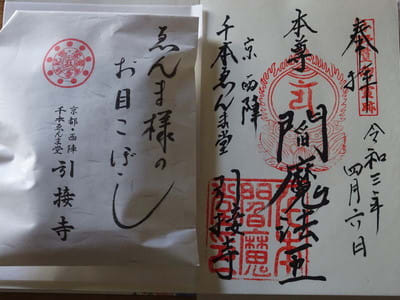 ゑんま様の
お目こぼし
京都・西陣
千本ゑんま堂
引接寺
奉拝
令和三年
四月六日
本尊
閻魔法王
京 西陣
千本ゑんま堂
引接寺